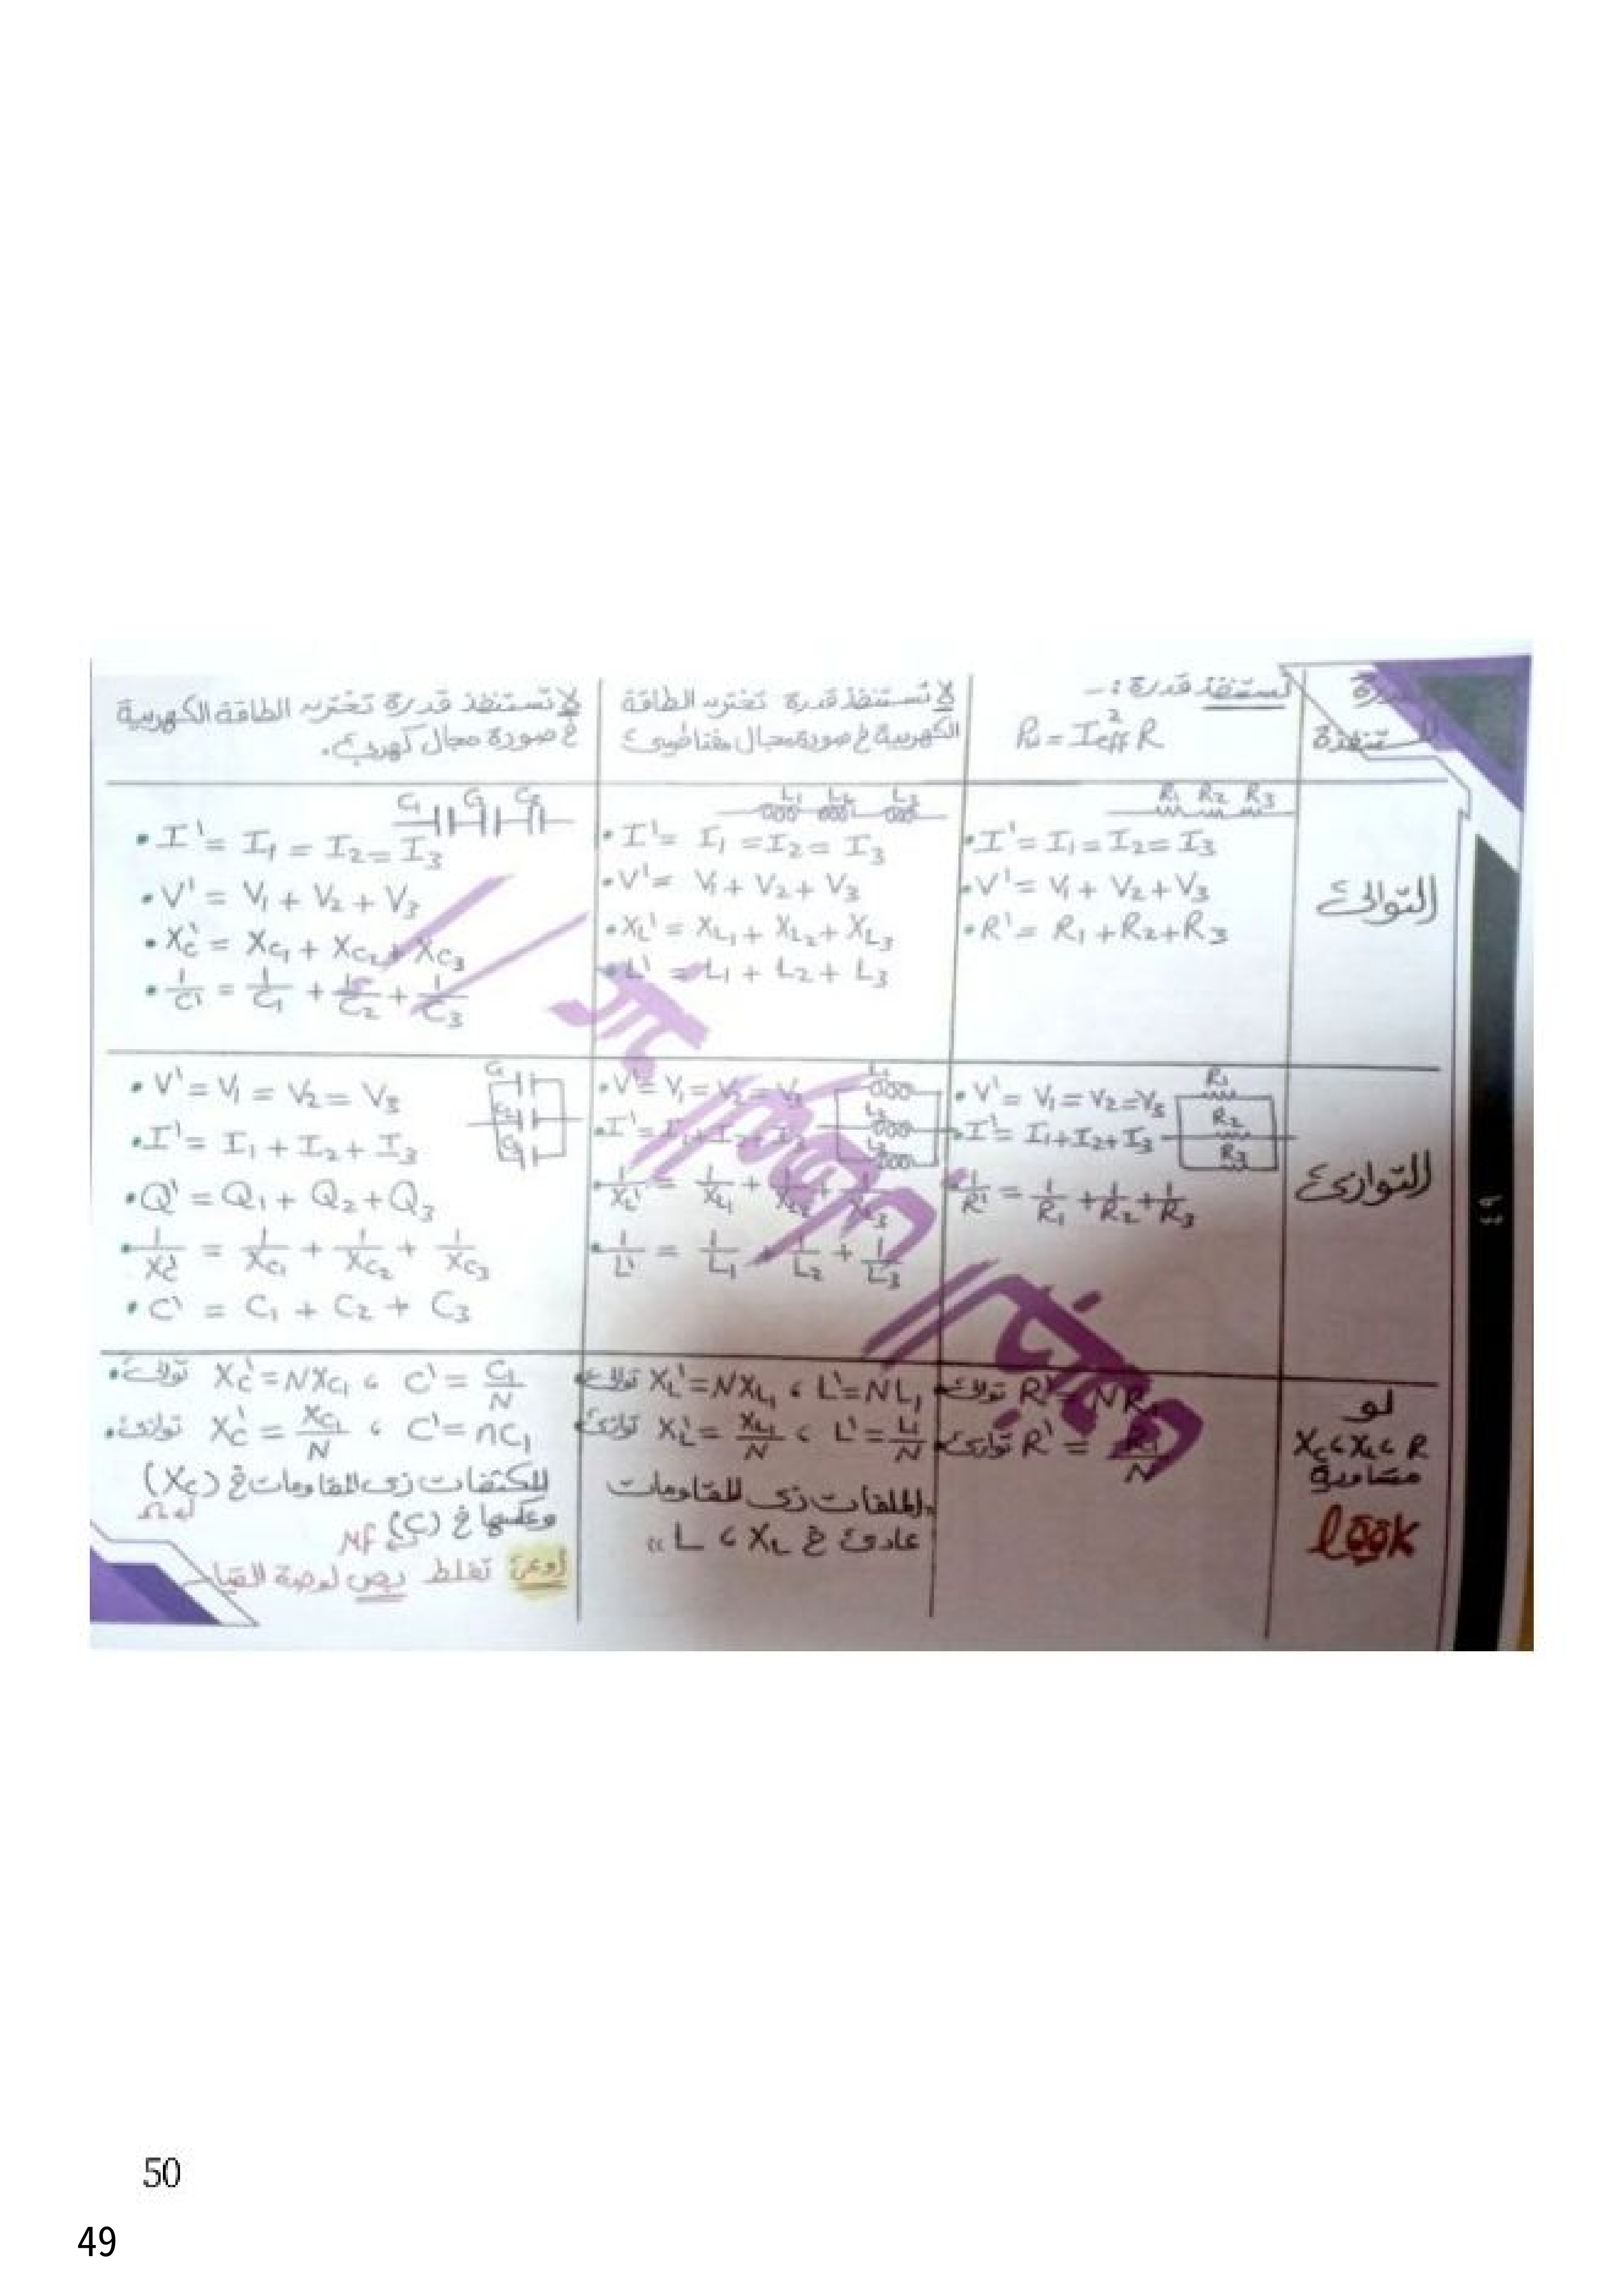 القدرة المستنفذة
تستنفذ قدرة :-
Pw = I²eff R
لا تستنفذ قدرة تختزن الطاقة
الكهربية في صورة مجال مغناطيسي
لا تستنفذ قدرة تختزن الطاقة الكهربية
في صورة مجال كهربي.
التوالي
R₁ R₂ R₃
• I' = I₁ = I₂ = I₃
• V' = V₁ + V₂ + V₃
• R' = R₁ + R₂ + R₃
L₁ L₂ L₃
• I' = I₁ = I₂ = I₃
• V' = V₁ + V₂ + V₃
• XL' = XL₁ + XL₂ + XL₃
• L' = L₁ + L₂ + L₃
C₁ C₂
• I' = I₁ = I₂ = I₃
• V' = V₁ + V₂ + V₃
• Xc' = Xc₁ + Xc₂ + Xc₃
• 1/C' = 1/C₁ + 1/C₂ + 1/C₃
التوازي
R₁
R₂
R₃
• V' = V₁ = V₂ = V₃
• I' = I₁ + I₂ + I₃
• 1/R' = 1/R₁ + 1/R₂ + 1/R₃
• V' = V₁ = V₂ = V₃
• I' = I₁ + I₂ + I₃
• 1/XL' = 1/XL₁ + 1/XL₂ + 1/XL₃
• 1/L' = 1/L₁ + 1/L₂ + 1/L₃
C₁
C₂
• V' = V₁ = V₂ = V₃
• I' = I₁ + I₂ + I₃
• Q' = Q₁ + Q₂ + Q₃
• 1/Xc' = 1/Xc₁ + 1/Xc₂ + 1/Xc₃
• C' = C₁ + C₂ + C₃
لو
Xc ، XL ، R
متساوية
look
• توالي R' = NR₁
• توازي R' = R₁/N
• توالي XL' = NXL₁ ، L' = NL₁
• توازي XL' = XL₁/N ، L' = L₁/N
"الملفات زي المقاومات
عادي في L ، XL"
• توالي Xc' = NXc₁ ، C' = C₁/N
• توازي Xc' = Xc₁/N ، C' = nC₁
المكثفات زي المقاومات في (Xc)
وعكسها في (C)
أوعى تغلط بص لوحدة القياس
50
49